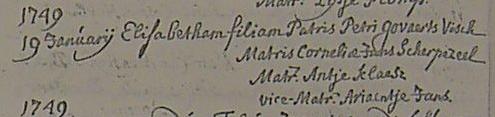 1749
19 Januarij Elisabetham filiam Patris Petri Govaerts Visch
Matris Corneliæ Jans Scherpezeel
Matr. Antje Klaasz
vice-Matr. Ariaentje Jans.
1749